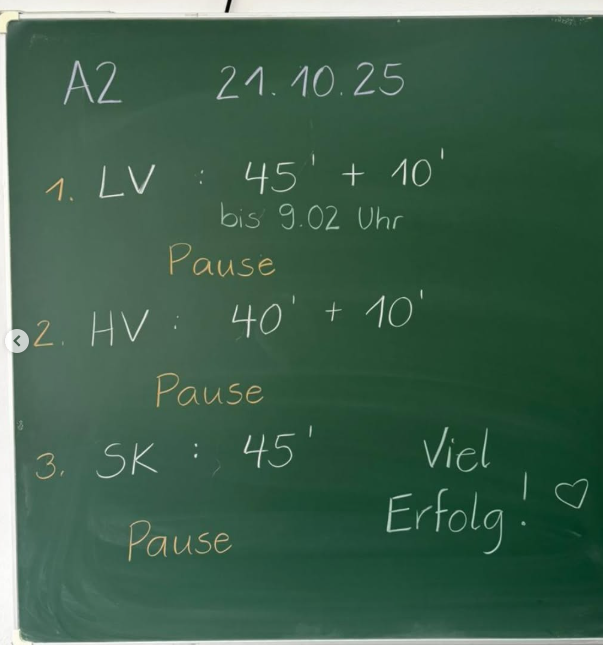 A2 21.10.25
1. LV : 45' + 10'
bis 9.02 Uhr
Pause
2. HV : 40' + 10'
Pause
3. SK : 45'
Viel
Erfolg! ♡
Pause